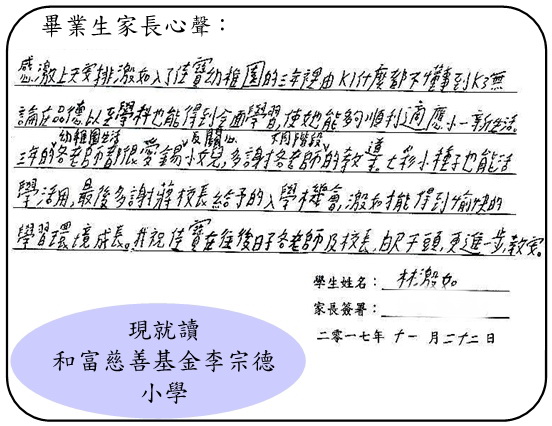 畢業生家長心聲：
感激上天安排激如入了佳寶幼稚園的三年裡由K1什麼都不懂事到K3無
論在品德以至學科也能得到全面學習，使她能夠順利適應小一新生活。
幼稚園生活 及關心 不同階段
三年的各老師都很愛錫小女兒，多謝各老師的教導七彩小種子也能活
學活用，最後多謝蔣校長給予的入學機會，激如才能得到愉快的
學習環境成長。我祝佳寶在往後日子各老師及校長，百尺竿頭，更進一步，教安。
學生姓名：林激如
家長簽署：
二零一七年 十一 月 二十二 日
現就讀
和富慈善基金李宗德
小學